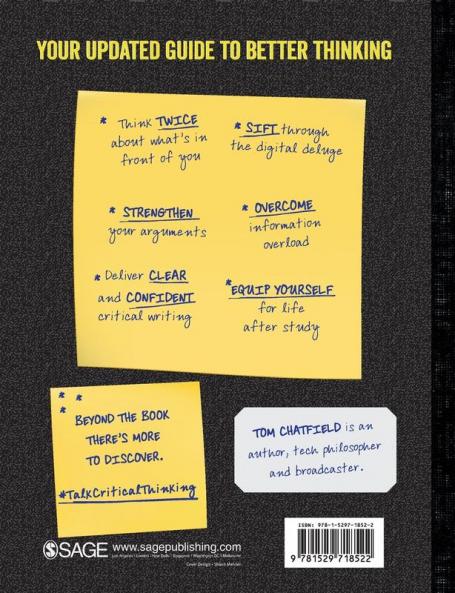 YOUR UPDATED GUIDE TO BETTER THINKING
* Think TWICE
about what's in
front of you
* SIFT through
the digital deluge
* STRENGTHEN
your arguments
* OVERCOME
information
overload
* Deliver CLEAR
and CONFIDENT
critical writing
* EQUIP YOURSELF
for life
after study
* *
*
BEYOND THE BOOK
THERE'S MORE
TO DISCOVER.
#TalkCriticalThinking
TOM CHATFIELD is an
author, tech philosopher
and broadcaster.
SAGE www.sagepublishing.com
Los Angeles | London | New Delhi | Singapore | Washington DC | Melbourne
Cover Design • Shaun Mercier
ISBN: 978-1-5297-1852-2
9 781529 718522